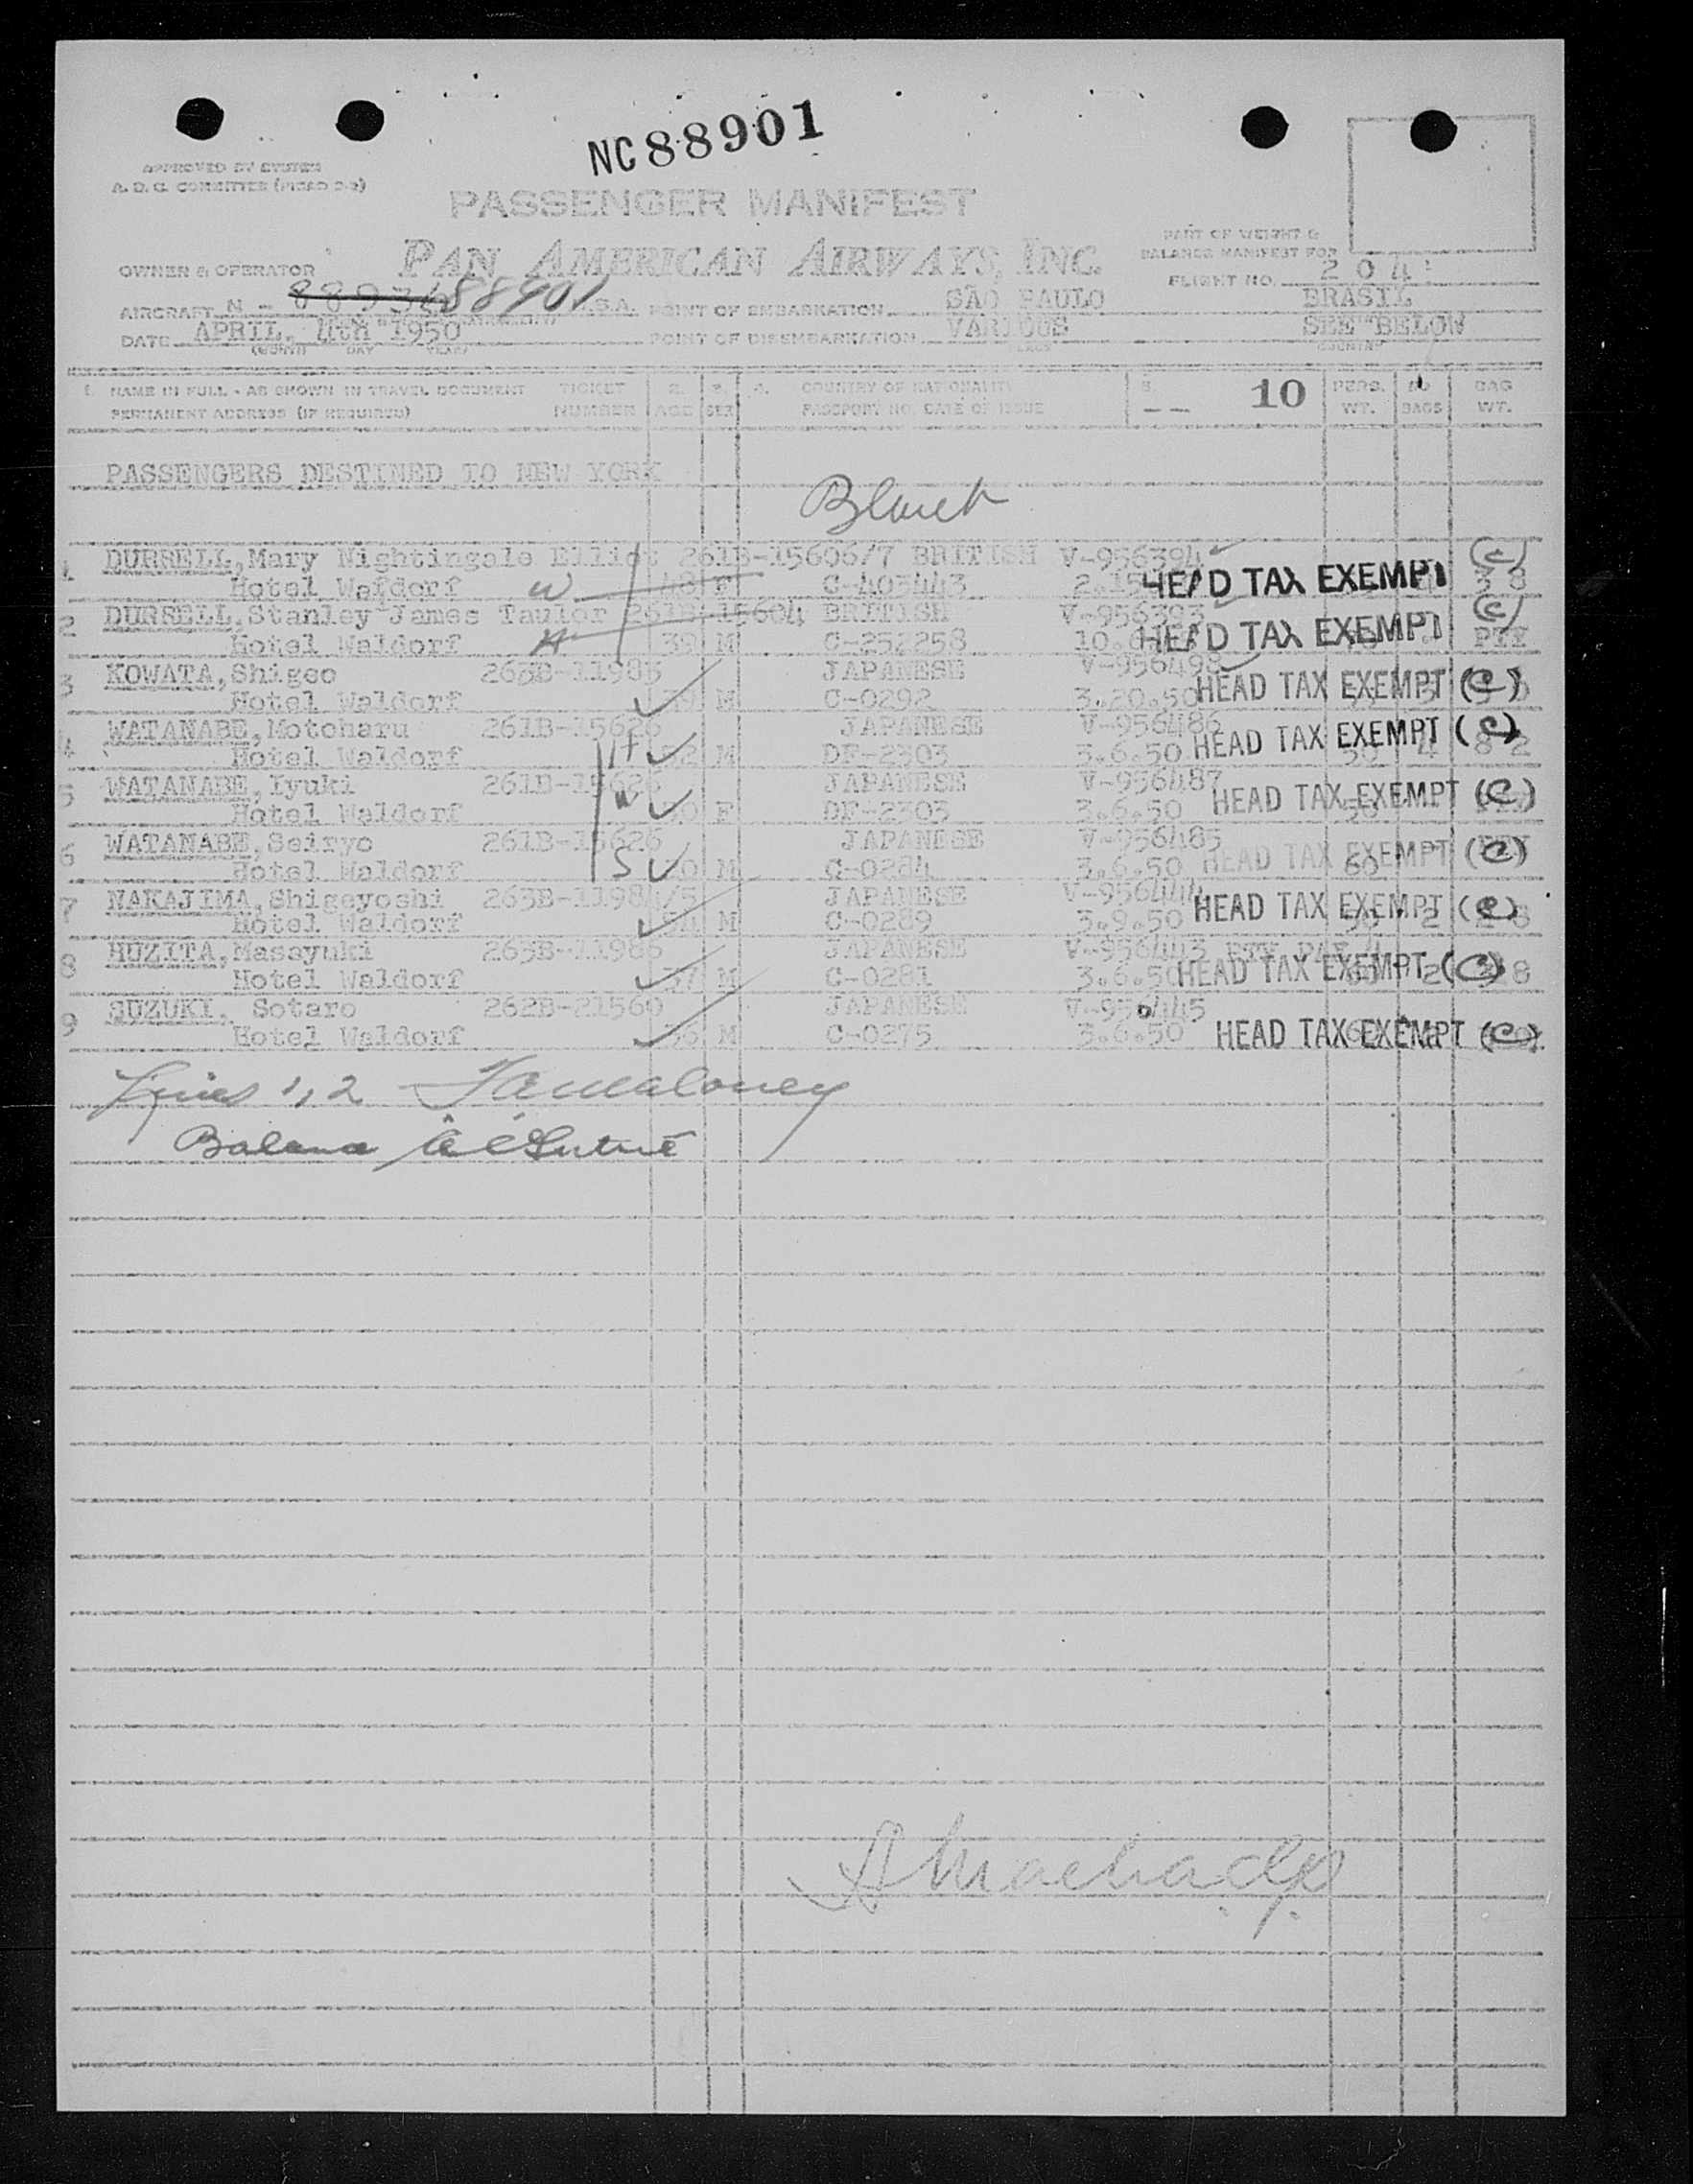 NC88901
APPROVED BY SYSTEM
A. D. C. COMMITTEE
PASSENGER MANIFEST
PART OF WEIGHT &
BALANCE MANIFEST FOR
OWNER & OPERATOR PAN AMERICAN AIRWAYS, INC.
FLIGHT NO. 204
AIRCRAFT N - 88901 U.S.A. POINT OF EMBARKATION SÃO PAULO BRASIL
DATE APRIL, 4th 1950 POINT OF DISEMBARKATION VARIOUS SEE BELOW
(MONTH) DAY YEAR PLACE COUNTRY
1. NAME IN FULL - AS SHOWN IN TRAVEL DOCUMENT TICKET 2. 3. 4. COUNTRY OF NATIONALITY 5. 10 PERS. NO BAG
PERMANENT ADDRESS (IF REQUIRED) NUMBER AGE SEX PASSPORT NO. DATE OF ISSUE -- WT. BAGS WT.
PASSENGERS DESTINED TO NEW YORK
1 DURRELL, Mary Nightingale Elliot 261B-15606/7 BRITISH V-956394 (C)
Hotel Waldorf W F C-403443 HEAD TAX EXEMPT 38
2 DURRELL, Stanley James Taylor 261B-15604 BRITISH V-956393 (C)
Hotel Waldorf H 39 M C-252258 HEAD TAX EXEMPT
3 KOWATA, Shigeo JAPANESE V-956498
Hotel Waldorf M C-0292 3.20.50 HEAD TAX EXEMPT (C)
4 WATANABE, Motoharu 261B-15626 JAPANESE V-956486
Hotel Waldorf H 52 M DF-2303 3.6.50 HEAD TAX EXEMPT (C)
5 WATANABE, Iyuki 261B-15626 JAPANESE V-956487
Hotel Waldorf W F DF-2303 3.6.50 HEAD TAX EXEMPT (C)
6 WATANABE, Seiryo 261B-15626 JAPANESE V-956485
Hotel Waldorf S M C-0284 3.6.50 HEAD TAX EXEMPT (C)
7 NAKAJIMA, Shigeyoshi 263B-11984/5 JAPANESE V-956444
Hotel Waldorf M C-0289 3.9.50 HEAD TAX EXEMPT (C)
8 HUZITA, Masayuki 263B-11986 JAPANESE V-956443
Hotel Waldorf 37 M C-0281 3.6.50 HEAD TAX EXEMPT (C)
9 SUZUKI, Sotaro 262B-21560 JAPANESE
Hotel Waldorf 36 M C-0275 3.6.50 HEAD TAX EXEMPT (C)
Lines 1, 2 Maloney
Balance